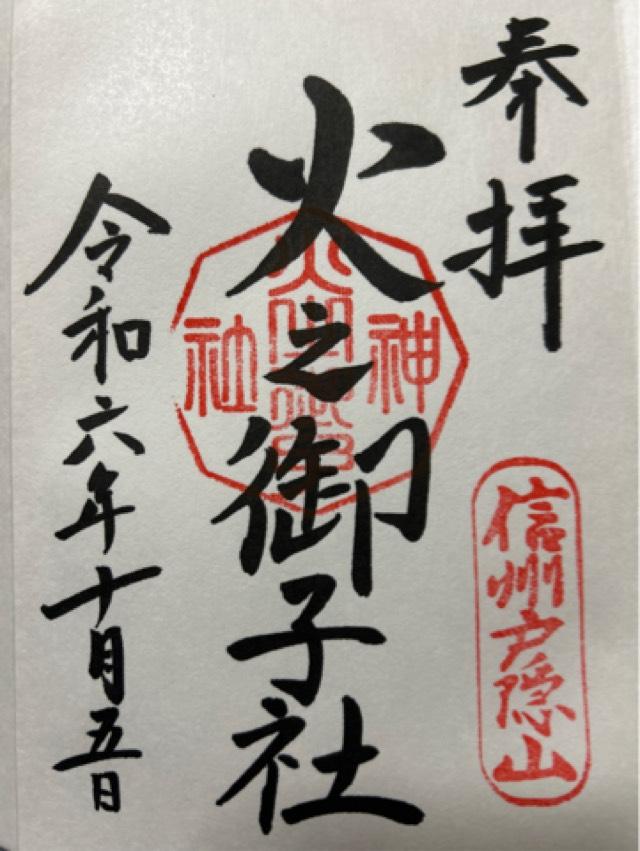 奉拝
信州戸隠山
火之御子社
神
社
令和六年十月五日